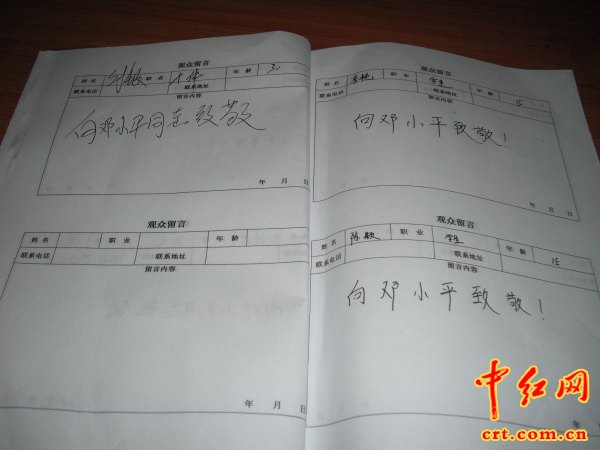 观众留言
姓名 职业 年龄 30
联系电话 联系地址
留言内容
向邓小平同志致敬
年 月 日
观众留言
姓名 职业 年龄
联系电话 联系地址
留言内容
年 月 日
观众留言
姓名 李艳 职业 学生 年龄 15
联系电话 联系地址
留言内容
向邓小平致敬!
年 月 日
观众留言
姓名 陈颖 职业 学生 年龄 15
联系电话 联系地址
留言内容
向邓小平致敬!
年
中红网
crt.com.cn